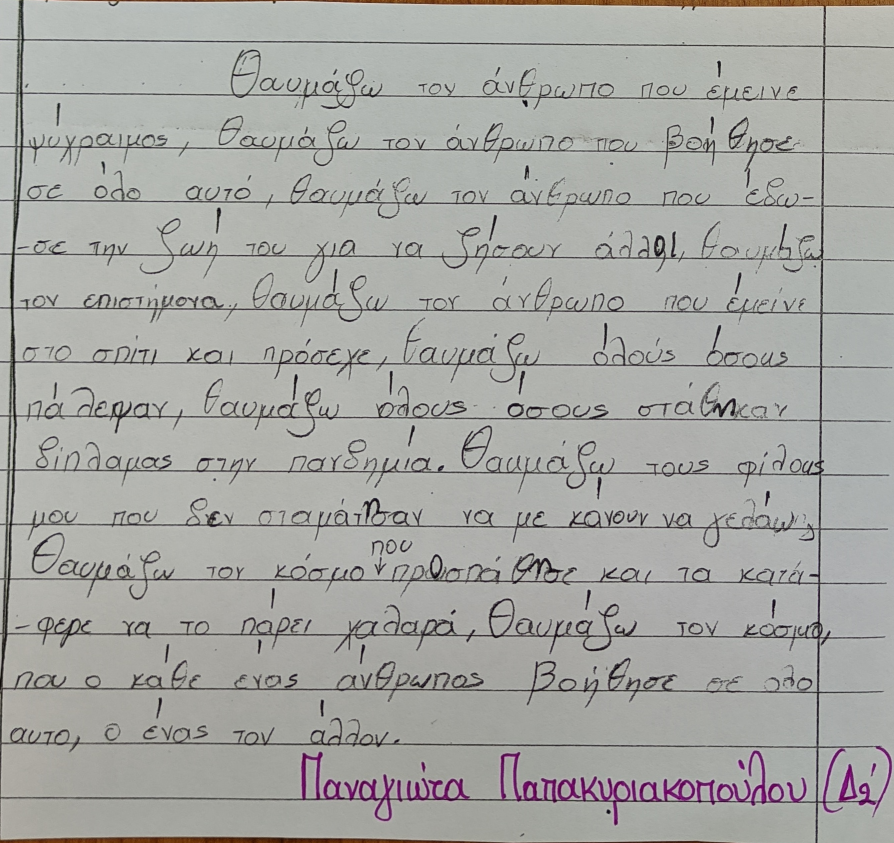 Θαυμάζω τον άνθρωπο που έμεινε
ψύχραιμος, Θαυμάζω τον άνθρωπο που βοήθησε
σε όλο αυτό, θαυμάζω τον άνθρωπο που έδω-
-σε την ζωή του για να ζήσουν άλλοι, θαυμάζω
τον επιστήμονα, θαυμάζω τον άνθρωπο που έμεινε
στο σπίτι και πρόσεχε, θαυμάζω όλούς όσους
πάλεψαν, θαυμάζω όλους όσους στάθηκαν
δίπλαμας στην πανδημία. Θαυμάζω τους φίλους
μου που δεν σταμάτησαν να με κάνουν να γελάω,
Θαυμάζω τον κόσμο που προσπάθησε και τα κατά-
-φερε να το πάρει χαλαρά, Θαυμάζω τον κόσμο,
που ο κάθε ένας άνθρωπος βοήθησε σε ολο
αυτο, ο ένας τον άλλον.
Παναγιώτα Παπακυριακοπούλου (Δ2')